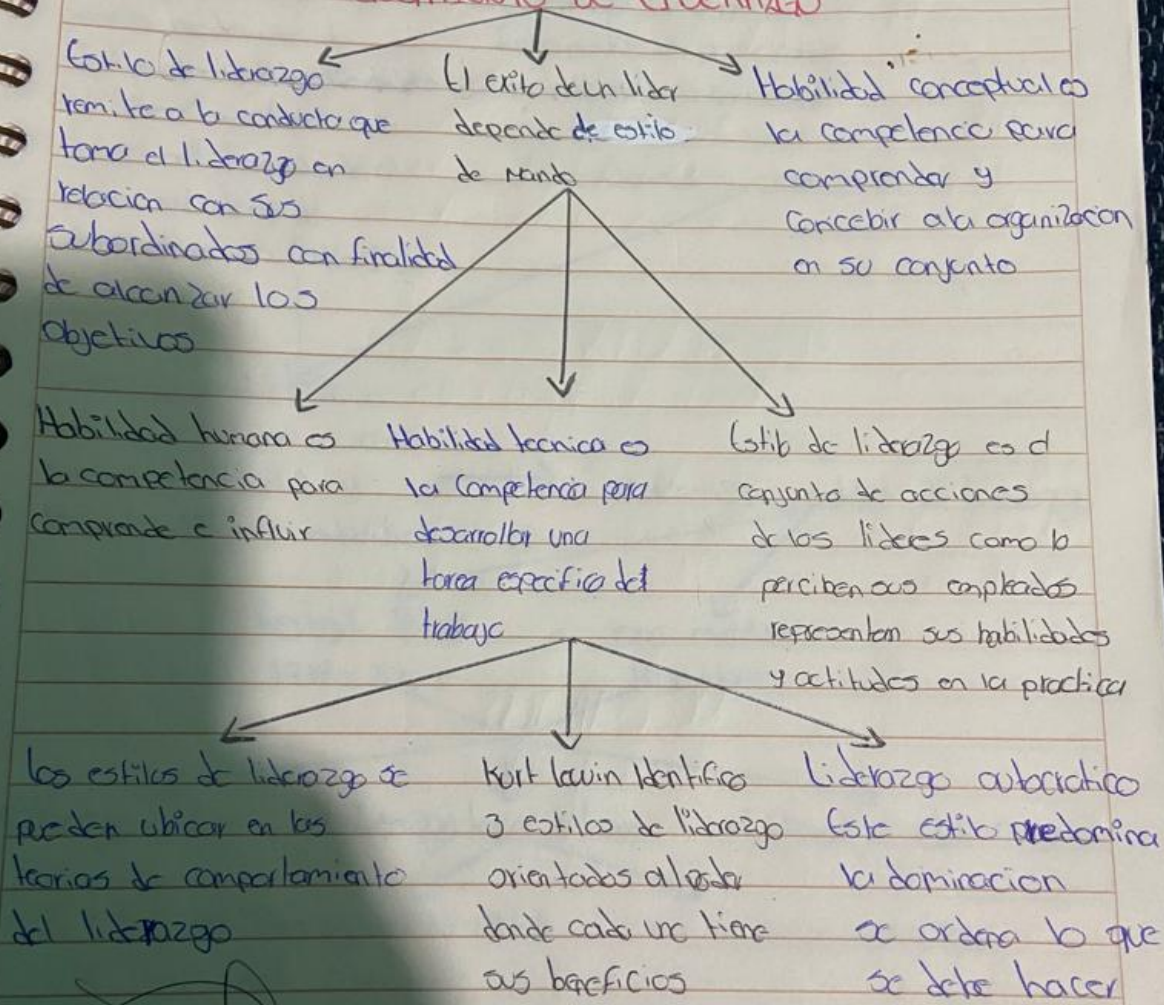 DE LIDERAZGO
Estilo de liderazgo
remite a la conducta que
toma el liderazgo en
relacion con sus
subordinados con finalidad
de alcanzar los
objetivos
El exito de un lider
depende de estilo
de mando
Habilidad conceptual es
la competencia para
comprender y
concebir a la organizacion
en su conjunto
Habilidad humana es
la competencia para
comprende e influir
Habilidad tecnica es
la competencia para
desarrollar una
tarea especifica del
trabajo
Estilo de liderazgo es el
conjunto de acciones
de los lideres como lo
perciben sus empleados
representan sus habilidades
y actitudes en la practica
los estilos de liderazgo se
pueden ubicar en las
teorias de comportamiento
del liderazgo
Kurt lewin Identifico
3 estilos de liderazgo
orientados al
donde cada uno tiene
sus beneficios
Liderazgo autocratico
Este estilo predomina
la dominacion
se ordena lo que
se debe hacer